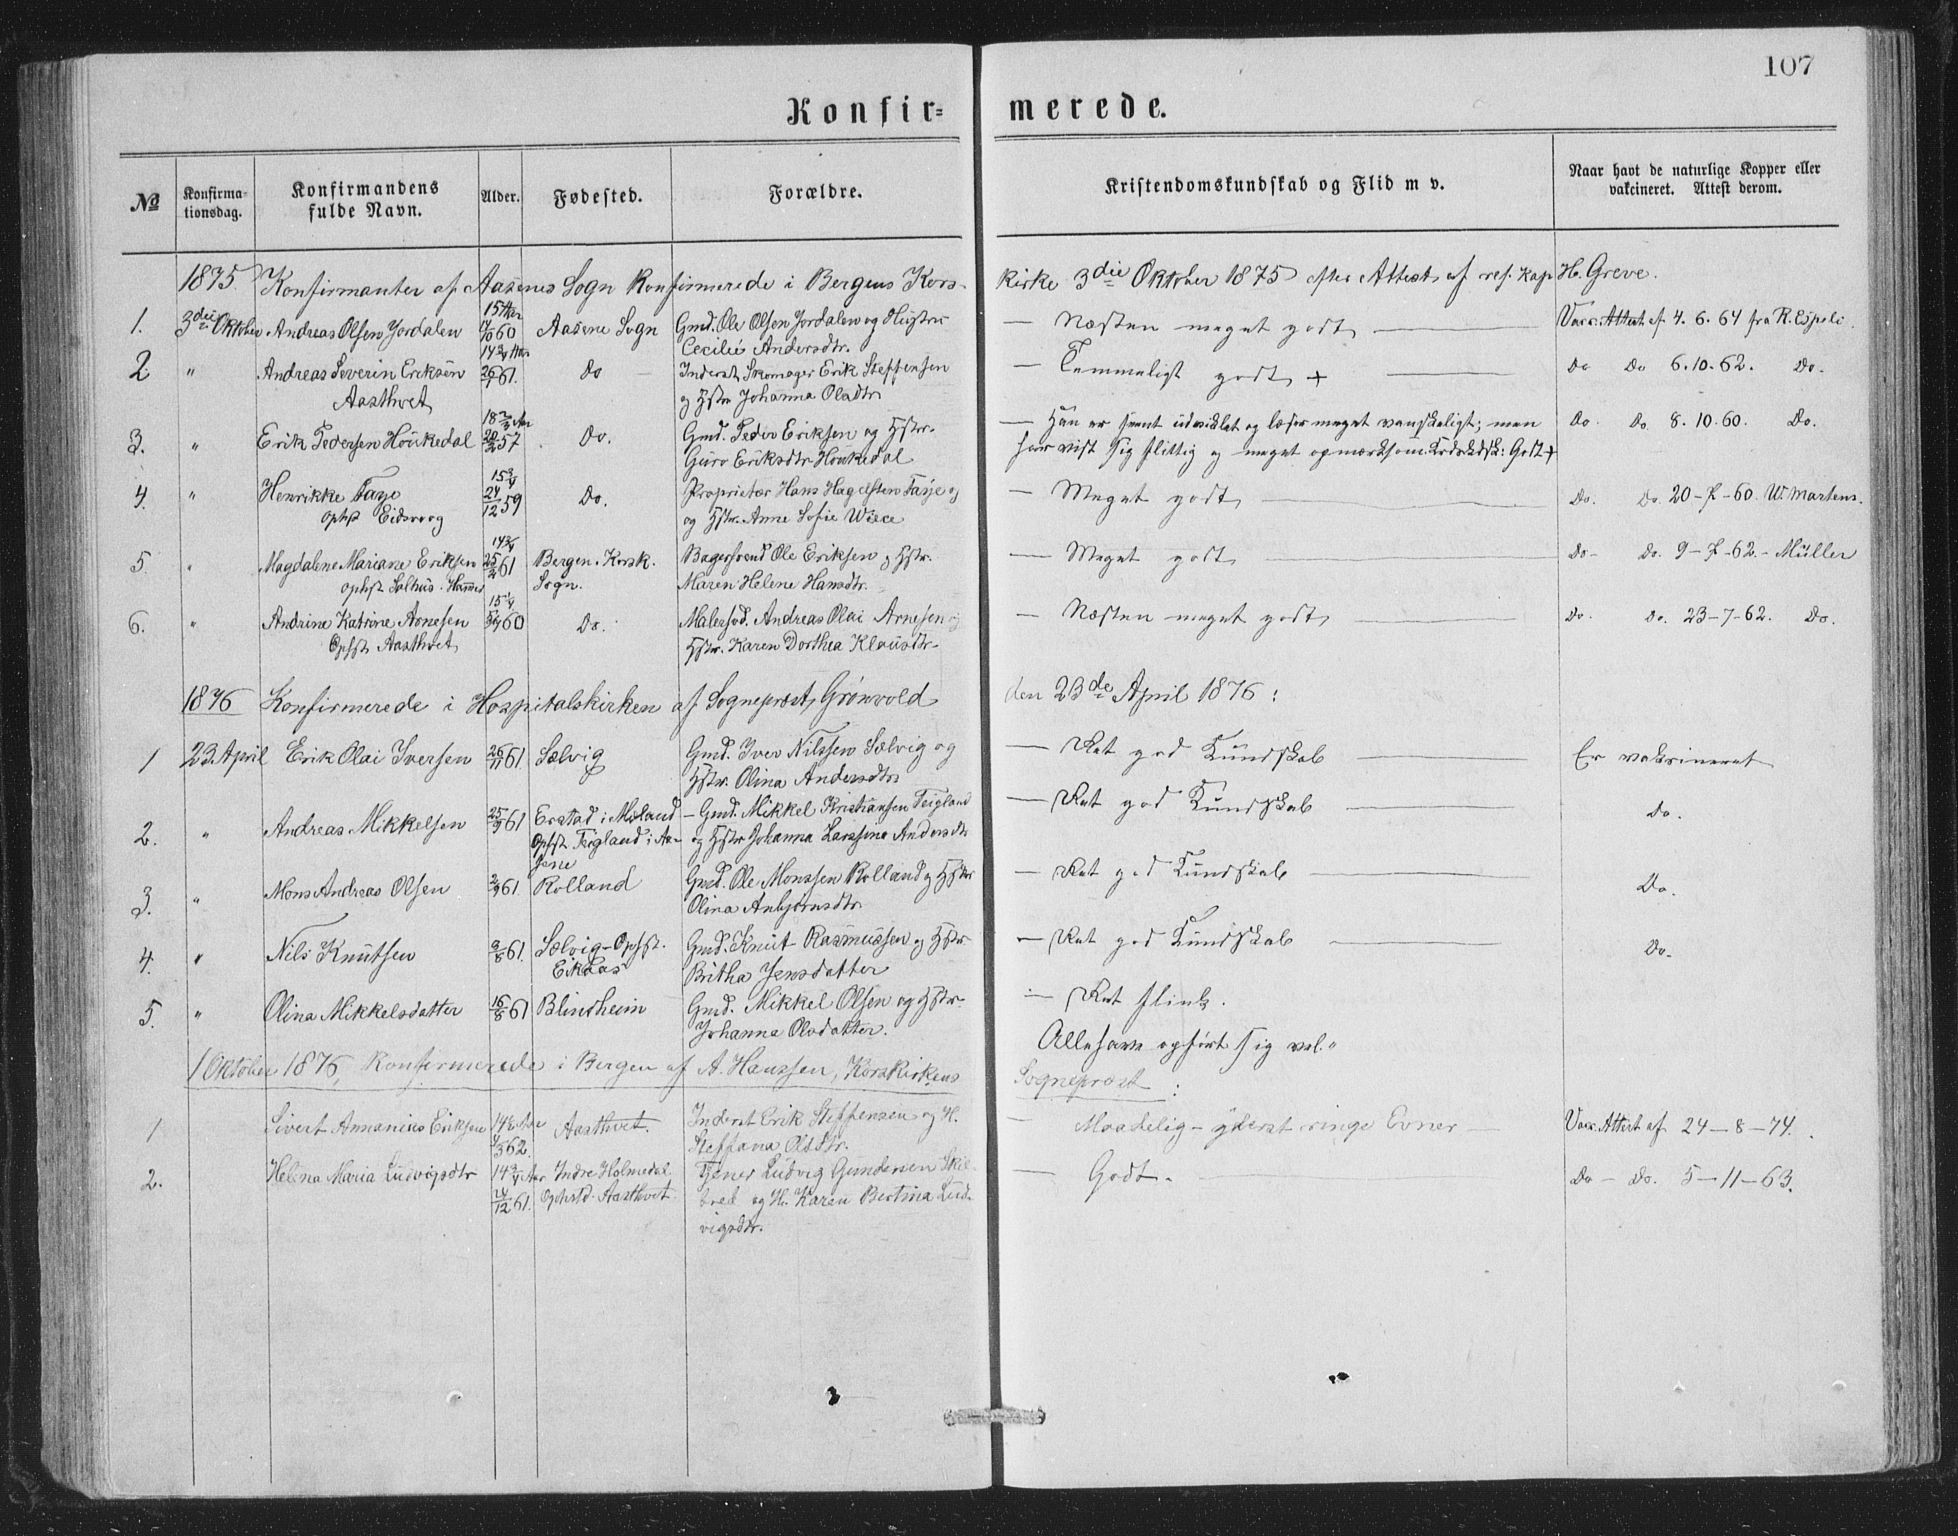 107
Konfir= merede.
№ Konfirma-tionsdag. Konfirmandens fulde Navn. Alder. Fødested. Forældre. Kristendomskundskab og Flid m v. Naar havt de naturlige Kopper eller vakcineret. Attest derom.
1875 Konfirmanter af Aasenes Sogn Konfirmerede i Bergens Kors- kirke 3die Oktober 1875 efter Attest af res. Kap H. Greve.
1. 3die Oktober Andreas Olsen Jordalen 15 Aar 60 Aasene Sogn Gmd. Ole Olsen Jordalen og Hustru — Næsten meget godt — Vacc. Attest af 4. 6. 64 fra R. Espeli.
Cecilie Andersdtr.
2 " Andreas Severin Eriksen 14 3/4 Aar 61. Do Inderst, Skomager Erik Steffensen — Temmeligt godt + — Do Do 6. 10. 62. Do.
Aasthvet og Hstr Johanna Olsdtr
3. " Erik Pedersen Hoükedal 18 Aar 57 Do. Gmd. Peder Eriksen og Hstr. — Han er seent udviklet og læser meget vanskeligt; men Do. Do. 8. 10. 60. Do.
Guro Eriksdtr Houkedal har vist sig flittig og meget opmærksom. Godt +
4. " Henrikke Fasje 15 3/4 24/12 59 Do. Proprietær Hans Hagelsten Fasje og — Meget godt — Do. Do. 20-7-60. W. Martens.
opfst Eidsvog og Hstr. Anne Sofie Wiese
5. " Magdalene Mariane Eriksen 14 3/4 61 Bergen. Korsk. Bagersvend Ole Eriksen og Hstr. — Meget godt — Do- Do. 9-7-62.- Müller
opfst Salhus. Hammer Sogn. Maren Helene Hansdtr.
6. " Andrine Katrine Arnesen 15 1/4 60 Do. Malersvd. Andreas Olai Arnesen og — Næsten meget godt — Do. Do. 23-7-62. Do.
Opfst Aasthvet Hstr. Karen Dorthea Klausdtr.
1876 Konfirmerede i Hospitalskirken af Sogneprest Grønvold den 23de April 1876:
1 23. April Erik Olai Iversen 26/11 61. Sælvig Gmd. Iver Nilssen Sælvig og — Ret god Kundskab — Er vakcineret
Hstr. Olina Andersdtr
2. " Andreas Mikkelsen 25/9 61 Erstad i Meland - Gmd. Mikkel Kristiansen Teigland — Ret god Kundskab — Do.
Opfst Teigland i Aa- og Hstr Johanna Larssine Andersdtr
sene
3. " Mons Andreas Olsen 2/9 61. Rolland Gmd. Ole Monssen Rolland og Hstr — Ret god Kundskab — Do.
Olina Anbjørnsdtr
4. " Nils Knutsen 9/8 61. Sælvig - Opfst. Gmd. Knut Rasmussen og Hstr — Ret god Kundskab — Do.
Eikaas Britha Jensdatter
5. " Olina Mikkelsdatter 16/8 61 Blindheim Gmd. Mikkel Olsen og Hstr — Ret flink.
Johanna Olsdatter. Alle have opført sig vel."
1 Oktober 1876, Konfirmerede i Bergen af A. Hanssen, Korskirkens Sogneprest:
1 Sivert Annanias Eriksen 14 Aar Aasthvet. Inderst Erik Steffensen og H. — Maadelig - yderst ringe Evner — Vacc. Attest af 24-8-74.
62. Steffana Olsdtr.
2. Helena Maria Ludvigsdtr 14 3/4 Aar Indre Holmedal. Tjener Ludvig Gundersen Skil- — Godt. — Do - Do. 5-11-63.
24/12 61. Opfstd. Aasthvet. bred og H. Karen Bertina Lud-
vigsdtr.